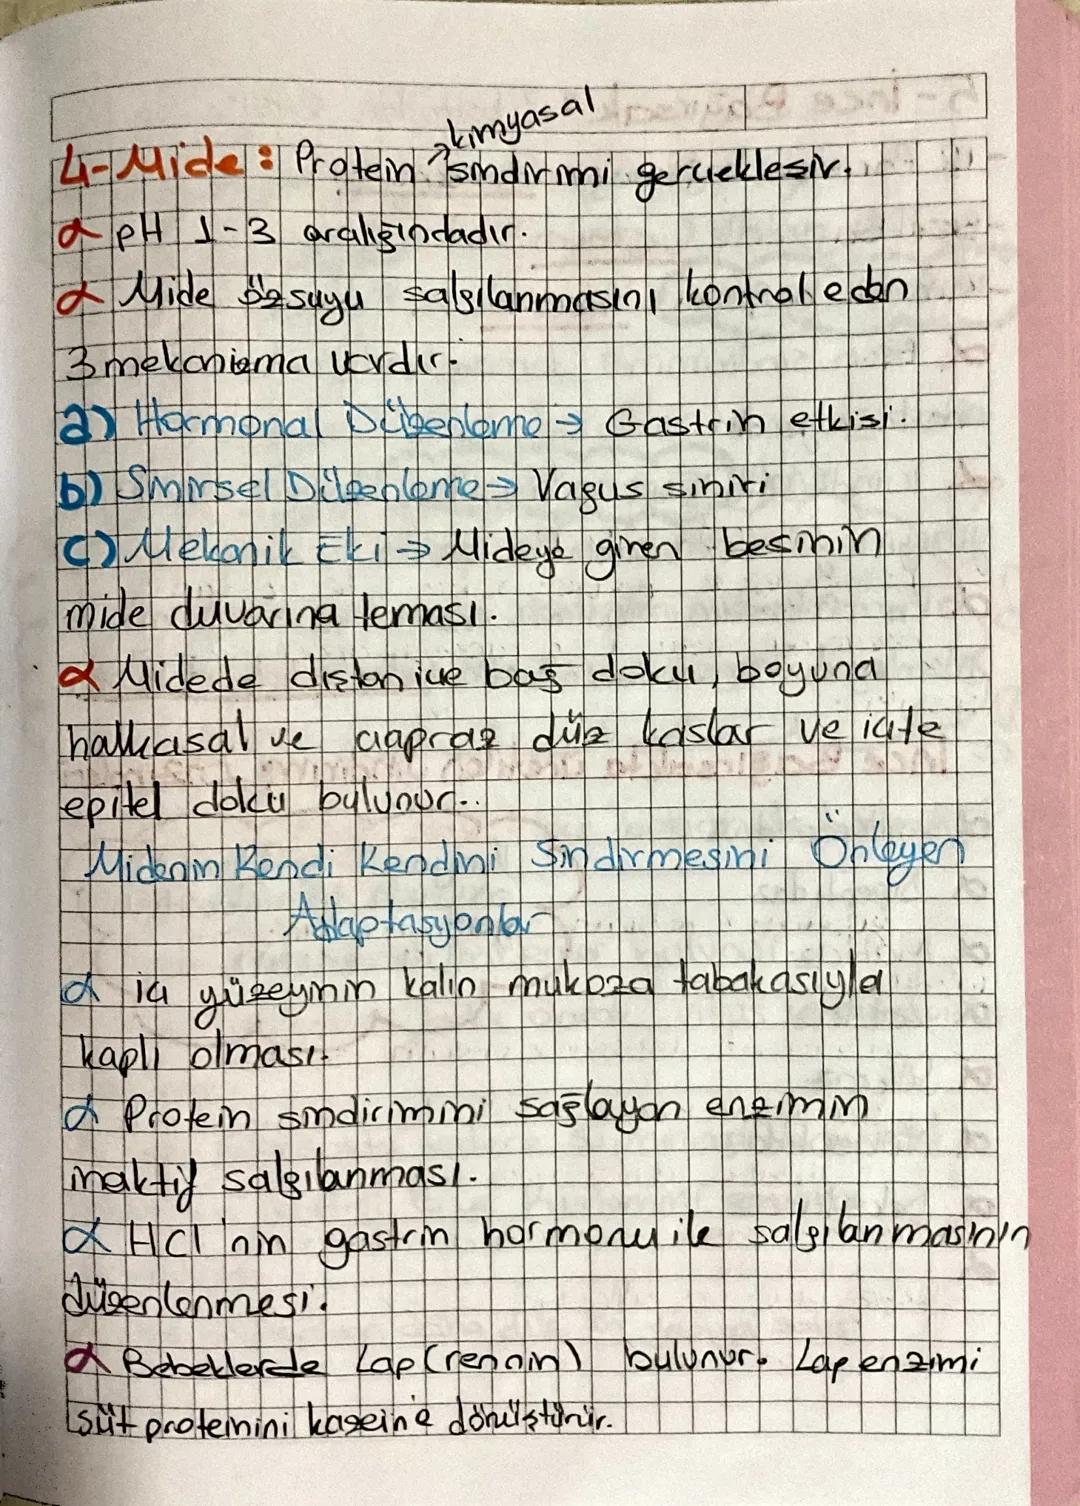 kimyasal
4-Mide: Protein sindirimi gerçekleşir.
α pH 1-3 aralığındadır.
α Mide özsuyu salgılanmasını kontrol eden
3 mekanizma vardır.
a) Hormonal Düzenleme → Gastrin etkisi.
b) Sinirsel Düzenleme → Vagus siniri
c) Mekanik Etki → Mideye giren besinin
mide duvarına teması.
α Midede dıştan içe bağ doku, boyuna
halkasal ve çapraz düz kaslar ve içte
epitel doku bulunur..
Midenin Kendi Kendini Sindirmesini Önleyen
Adaptasyonlar
α iç yüzeyinin kalın mukoza tabakasıyla
kaplı olması.
α Protein sindirimini sağlayan enzimin
inaktif salgılanması.
α HCl'nin gastrin hormonu ile salgılanmasının
düzenlenmesi.
α Bebeklerde Lap (rennin) bulunur. Lap enzimi
süt proteinini kazein'e dönüştürür.